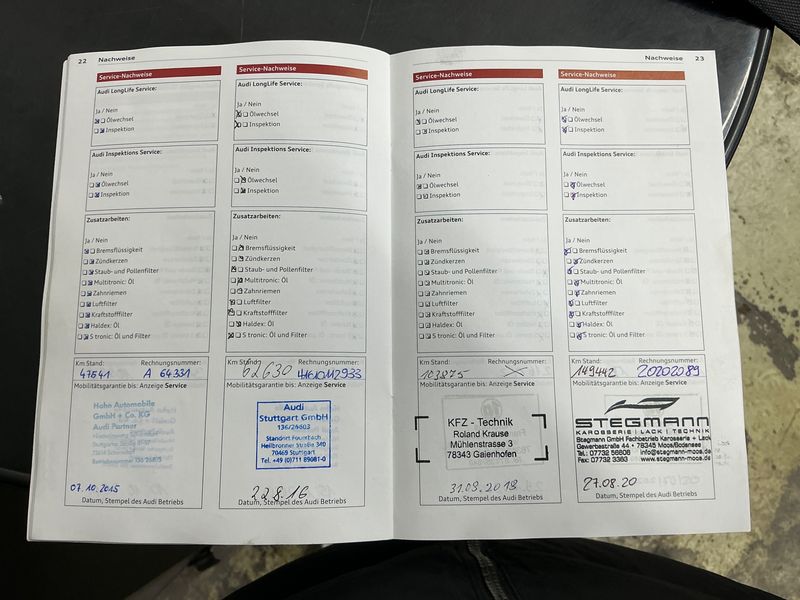 22 Nachweise
Service-Nachweise
Audi LongLife Service:
Ja / Nein
Ölwechsel
Inspektion
Audi Inspektions Service:
Ja / Nein
Ölwechsel
Inspektion
Zusatzarbeiten:
Ja / Nein
Bremsflüssigkeit
Zündkerzen
Staub- und Pollenfilter
Multitronic: Öl
Zahnriemen
Luftfilter
Kraftstofffilter
Haldex: Öl
S tronic: Öl und Filter
Km Stand: Rechnungsnummer:
47541 A 64331
Mobilitätsgarantie bis: Anzeige Service
Hahn Automobile
GmbH + Co. KG
Audi Partner
07.10.2015
Datum, Stempel des Audi Betriebs
Service-Nachweise
Audi LongLife Service:
Ja / Nein
Ölwechsel
Inspektion
Audi Inspektions Service:
Ja / Nein
Ölwechsel
Inspektion
Zusatzarbeiten:
Ja / Nein
Bremsflüssigkeit
Zündkerzen
Staub- und Pollenfilter
Multitronic: Öl
Zahnriemen
Luftfilter
Kraftstofffilter
Haldex: Öl
S tronic: Öl und Filter
Km Stand: Rechnungsnummer:
62630
Mobilitätsgarantie bis: Anzeige Service
Audi
Stuttgart GmbH
136/26803
Standort Feuerbach
Heilbronner Straße 340
70469 Stuttgart
Tel. +49 (0)711 89081-0
22.8.16
Datum, Stempel des Audi Betriebs
Nachweise 23
Service-Nachweise
Audi LongLife Service:
Ja / Nein
Ölwechsel
Inspektion
Audi Inspektions Service:
Ja / Nein
Ölwechsel
Inspektion
Zusatzarbeiten:
Ja / Nein
Bremsflüssigkeit
Zündkerzen
Staub- und Pollenfilter
Multitronic: Öl
Zahnriemen
Luftfilter
Kraftstofffilter
Haldex: Öl
S tronic: Öl und Filter
Km Stand: Rechnungsnummer:
Mobilitätsgarantie bis: Anzeige Service
KFZ - Technik
Roland Krause
Mühlenstrasse 3
78343 Gaienhofen
31.08.2018
Datum, Stempel des Audi Betriebs
Service-Nachweise
Audi LongLife Service:
Ja / Nein
Ölwechsel
Inspektion
Audi Inspektions Service:
Ja / Nein
Ölwechsel
Inspektion
Zusatzarbeiten:
Ja / Nein
Bremsflüssigkeit
Zündkerzen
Staub- und Pollenfilter
Multitronic: Öl
Zahnriemen
Luftfilter
Kraftstofffilter
Haldex: Öl
S tronic: Öl und Filter
Km Stand: Rechnungsnummer:
149442 20202089
Mobilitätsgarantie bis: Anzeige Service
STEGMANN
KAROSSERIE | LACK | TECHNIK
Stegmann GmbH Fachbetrieb Karosserie + Lack
Gewerbestraße 44 • 78345 Moos/Bodensee
Tel.: 07732 56608 info@stegmann-moos.de
Fax: 07732 3383 www.stegmann-moos.de
27.08.20
Datum, Stempel des Audi Betriebs